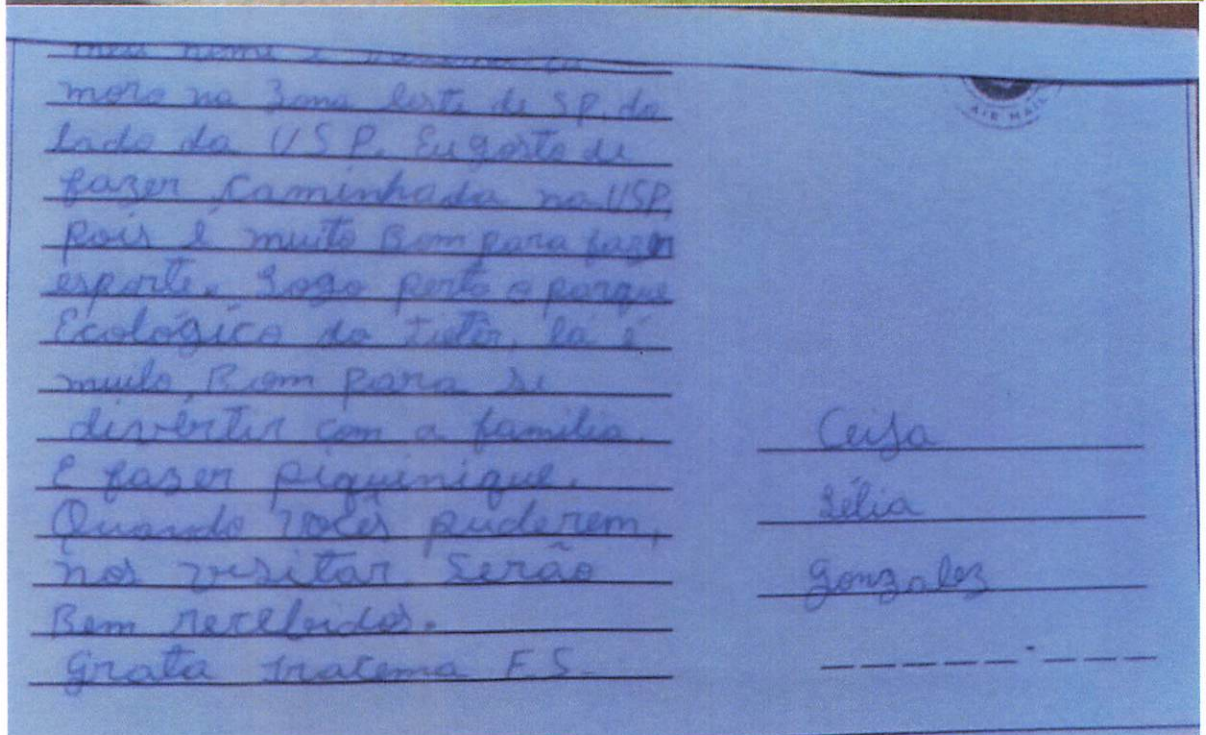 meu nome é
moro na Zona leste de SP, do
lado da USP. Eu gosto de
fazer caminhada na USP,
pois é muito Bom para fazer
esporte. Logo perto o parque
Ecológico do Tietê, lá é
muito, Bom para se
divertir com a família.
E faser piquinique.
Quando voces puderem,
nos visitar. Serão
Bem recebidos.
Grata Iracema F.S.
AIR MAIL
Ceisa
Lélia
Gonzalez